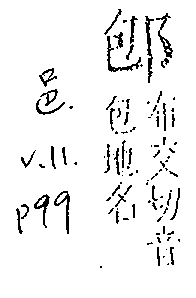 布交切音
包地名
邑.
v.11.
p99